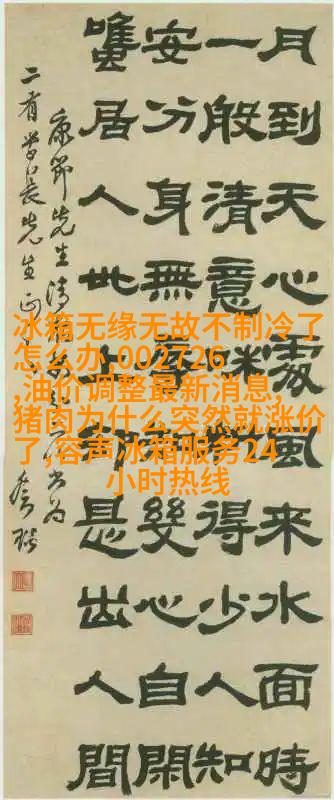 月到天心處風來水面時
一般清意味得少人知
安分身無幾心自閑
雖居人世上却是出人間
康節先生清
二有学長先生正
冰箱无缘无故不制冷了
怎么办 002726
,油价调整最新消息,
猪肉为什么突然就涨价
了,容声冰箱服务24
小时热线